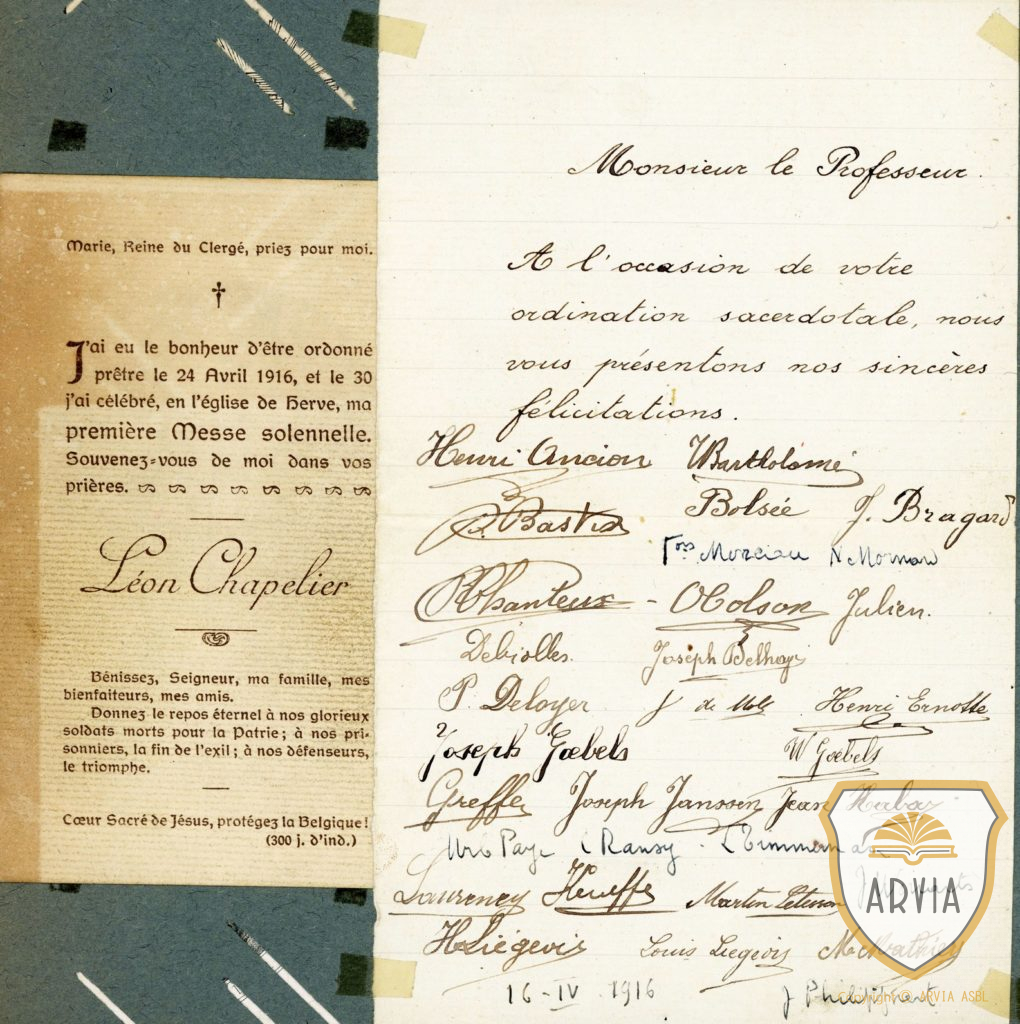 Marie, Reine du Clergé, priez pour moi.
J'ai eu le bonheur d'être ordonné
prêtre le 24 Avril 1916, et le 30
j'ai célébré, en l'église de Herve, ma
première Messe solennelle.
Souvenez-vous de moi dans vos
prières.
Léon Chapelier
Bénissez, Seigneur, ma famille, mes
bienfaiteurs, mes amis.
Donnez le repos éternel à nos glorieux
soldats morts pour la Patrie; à nos pri-
sonniers, la fin de l'exil; à nos défenseurs,
le triomphe.
Cœur Sacré de Jésus, protégez la Belgique!
(300 j. d'ind.)
Monsieur le Professeur.
A l'occasion de votre
ordination sacerdotale, nous
vous présentons nos sincères
félicitations.
Henri Ancion WBartholomé
Bastin Bolsée J. Bragard
Julien.
Debiolles. Joseph
P. Deloyer J de Henri Ernotte
Joseph Gœbels W Gœbels
Greffe Joseph Janssen Jean
C Ransy
Martin
H Liégeois Louis Liegeois M Mathieu
16-IV 1916
ARVIA
Copyright © ARVIA ASBL